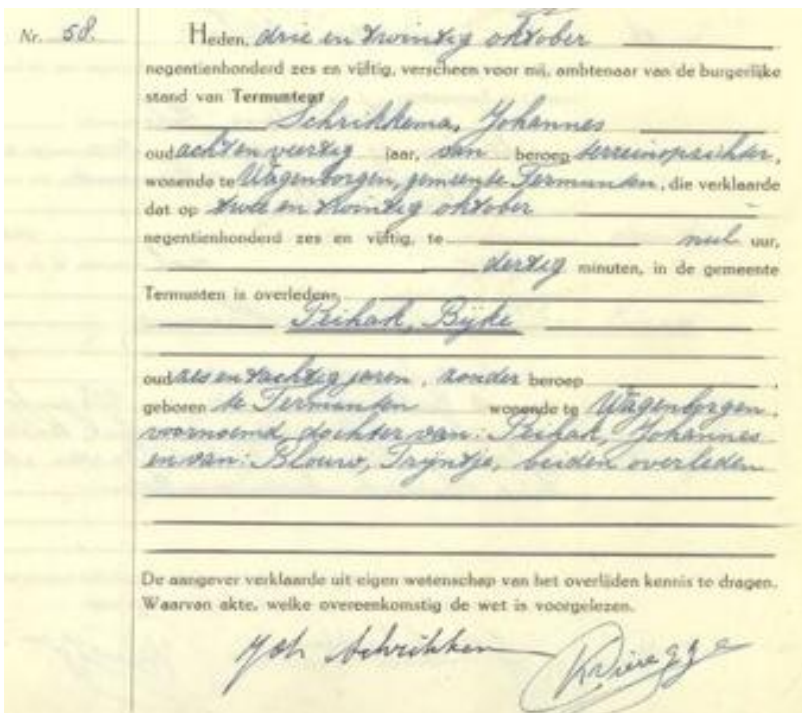 Nr. 58.
Heden, drie en twintig oktober
negentienhonderd zes en vijftig, verscheen voor mij, ambtenaar van de burgerlijke
stand van Termunten
Schrikkema, Johannes
oud acht en veertig jaar, van beroep terreinopzichter,
wonende te Wagenborgen, gemeente Termunten, die verklaarde
dat op twee en twintig oktober
negentienhonderd zes en vijftig, te nul uur,
dertig minuten, in de gemeente
Termunten is overleden:
Reihak, Bijke
oud zes en tachtig jaren, zonder beroep ,
geboren te Termunten wonende te Wagenborgen,
voornoemd, dochter van: Reihak, Johannes
en van: Blouw, Trijntje, beiden overleden
De aangever verklaarde uit eigen wetenschap van het overlijden kennis te dragen.
Waarvan akte, welke overeenkomstig de wet is voorgelezen.
Joh Schrikkema